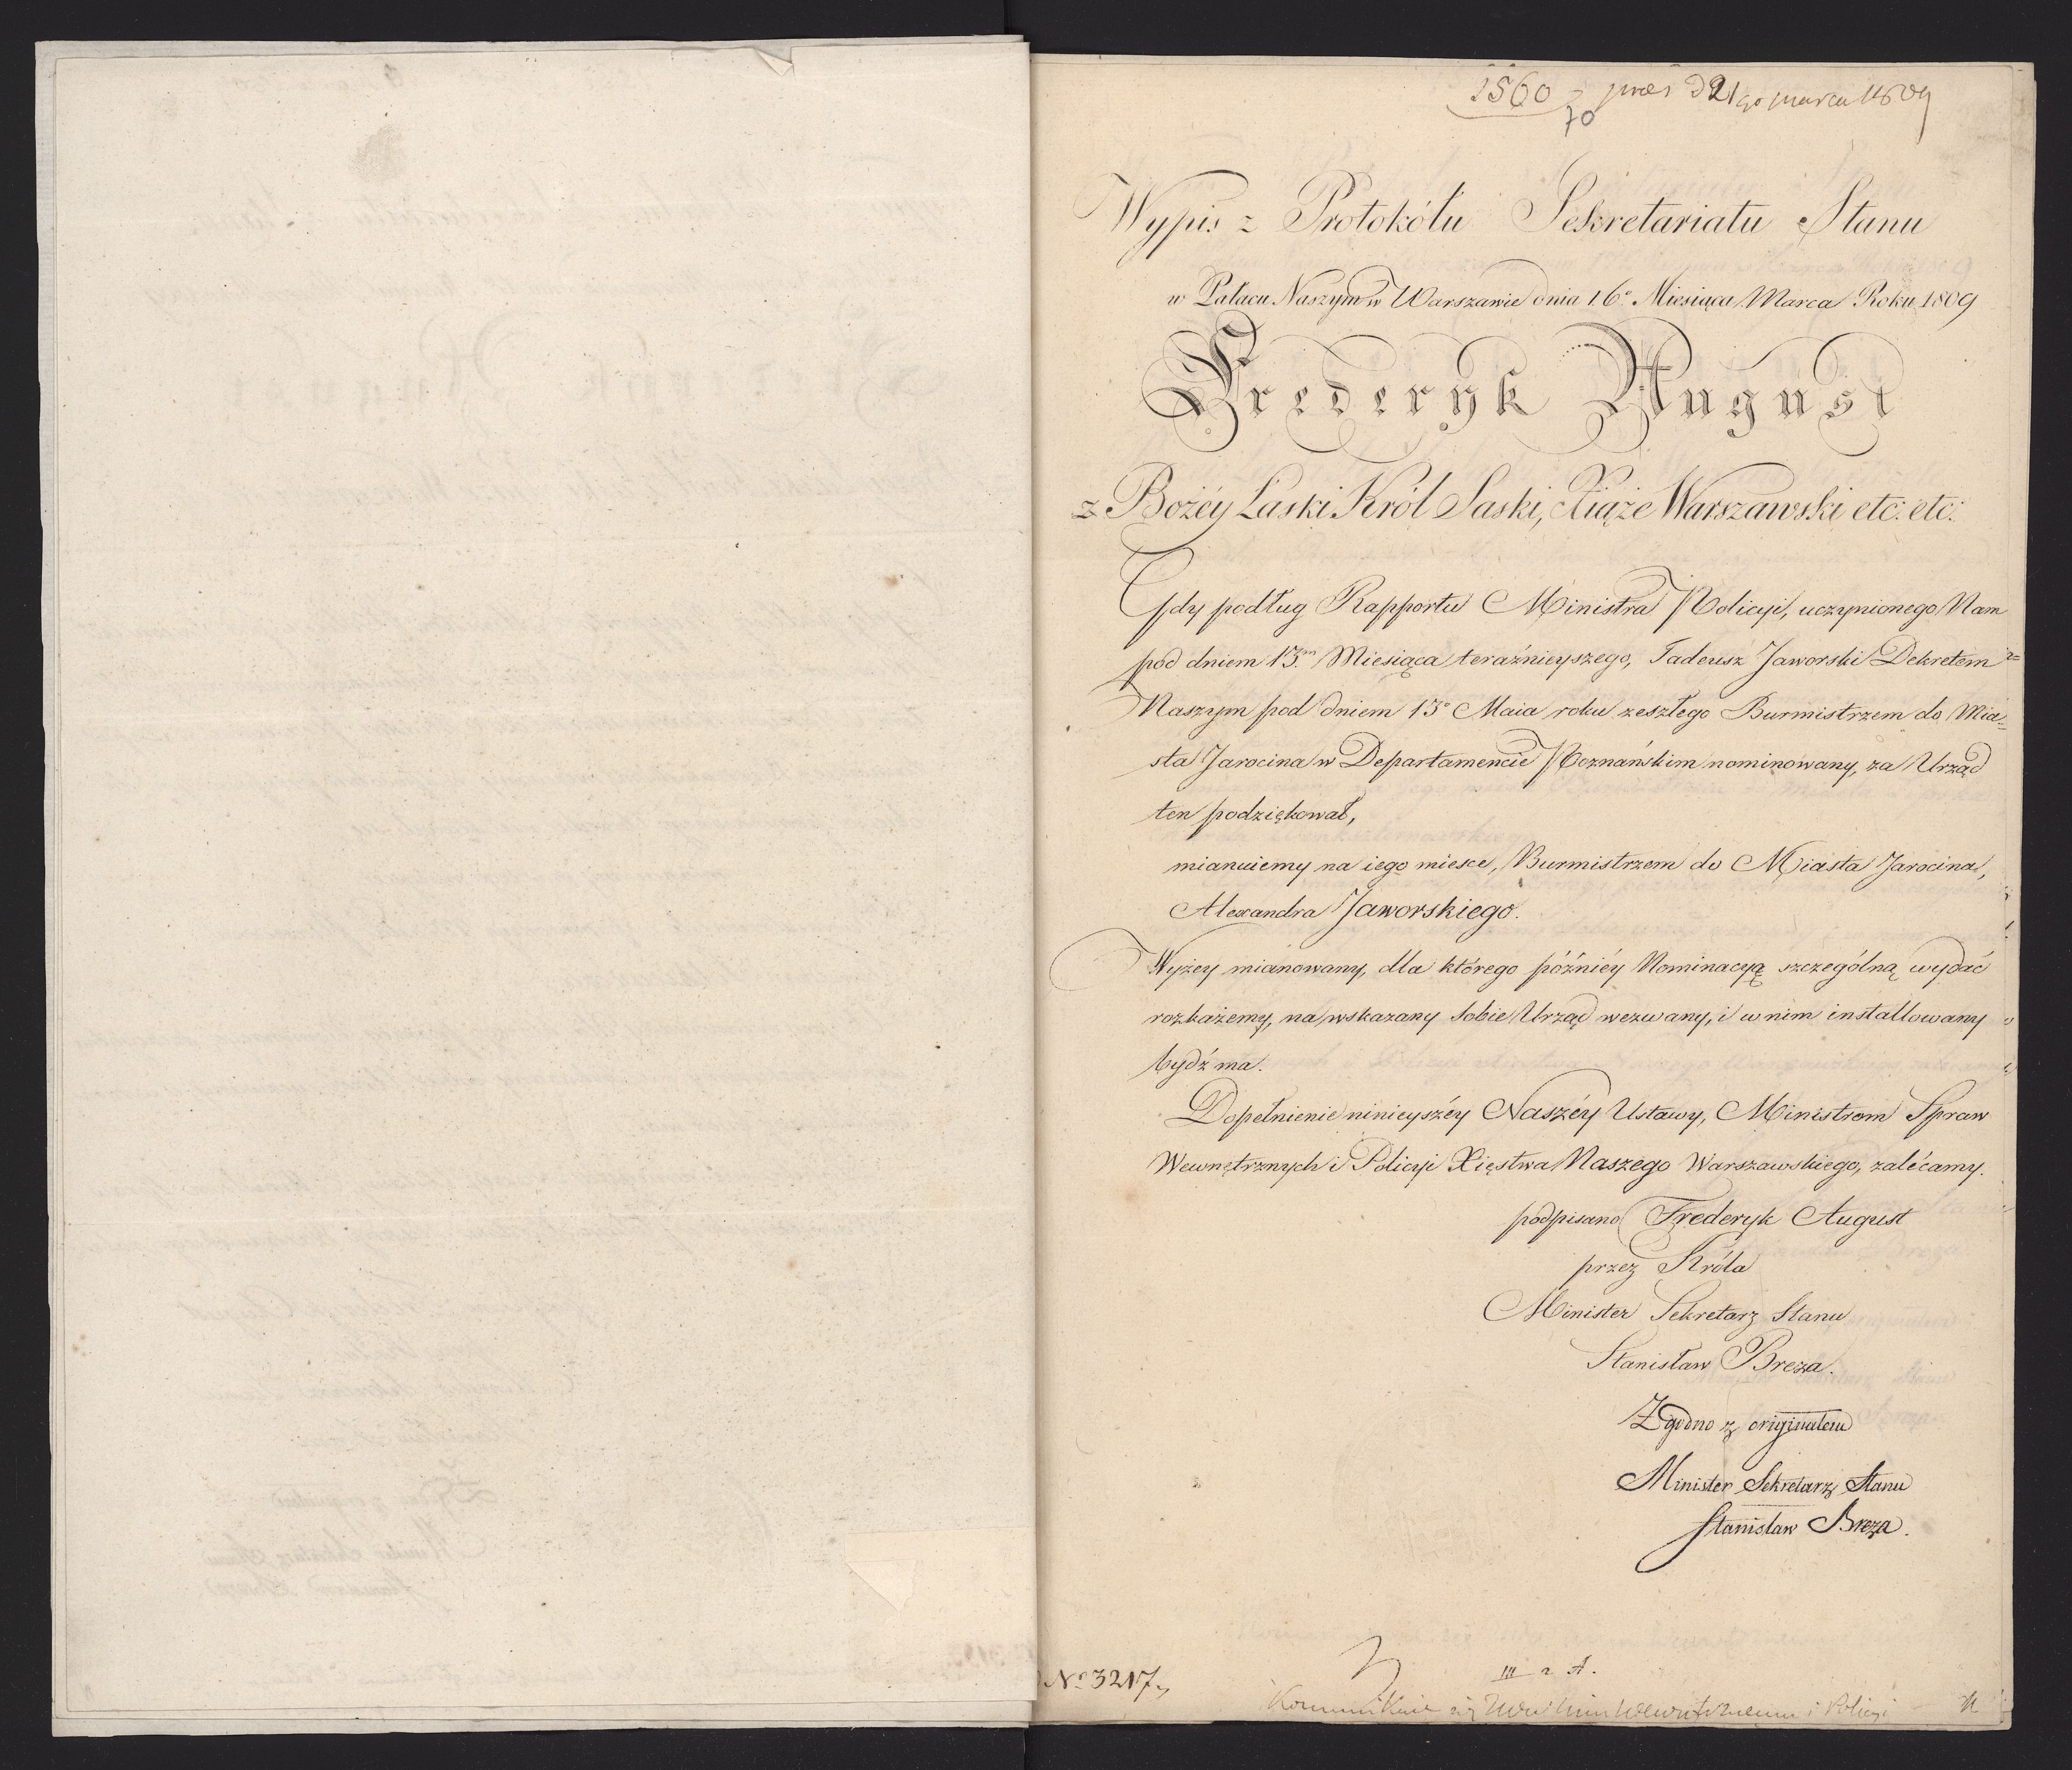 1560 pres d 21go marca 1809
70
Wypis z Protokółu Sekretariatu Stanu
w Pałacu Naszym w Warszawie dnia 16o Miesiąca Marca Roku 1809
Frederyk August
z Bożéy Łaski Król Saski, Xiąże Warszawski etc: etc:
Gdy podług Rapportu Ministra Policyi, uczynionego Nam
pod dniem 13m Miesiąca teraźnieyszego, Tadeusz Jaworski Dekretem
Naszym pod dniem 13o Maia roku zeszłego Burmistrzem do Mia=
sta Jarocina w Departamencie Poznańskim nominowany, za Urząd
ten podziękował,
mianuiemy na iego miesce, Burmistrzem do Miasta Jarocina,
Alexandra Jaworskiego.
Wyżey mianowany, dla którego późniéy Nominacyą szczególną wydać
rozkażemy, na wskazany sobie Urząd wezwany, i w nim installowany
bydź ma.
Dopełnienie ninieyszéy Naszéy Ustawy, Ministrom Spraw
Wewnętrznych i Policyi Xięstwa Naszego Warszawskiego, zalécamy.
podpisano Frederyk August
przez Króla
Minister Sekretarz Stanu
Stanisław Breza.
Zgodno z originałem
Minister Sekretarz Stanu
Stanisław Breza.
No 3217
III 2 A.
i Policyi